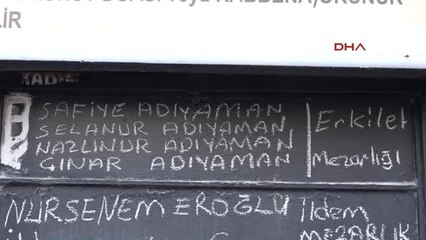 DHA
LİR
KAD
SAFİYE ADIYAMAN
SELANUR ADIYAMAN
NAZLINUR ADIYAMAN
ÇINAR ADIYAMAN
Erkilet
Mezarlığı
NURSENEM EROĞLU
İldem
MEZARLIK